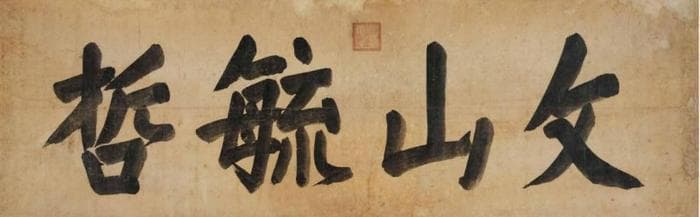 文山毓哲